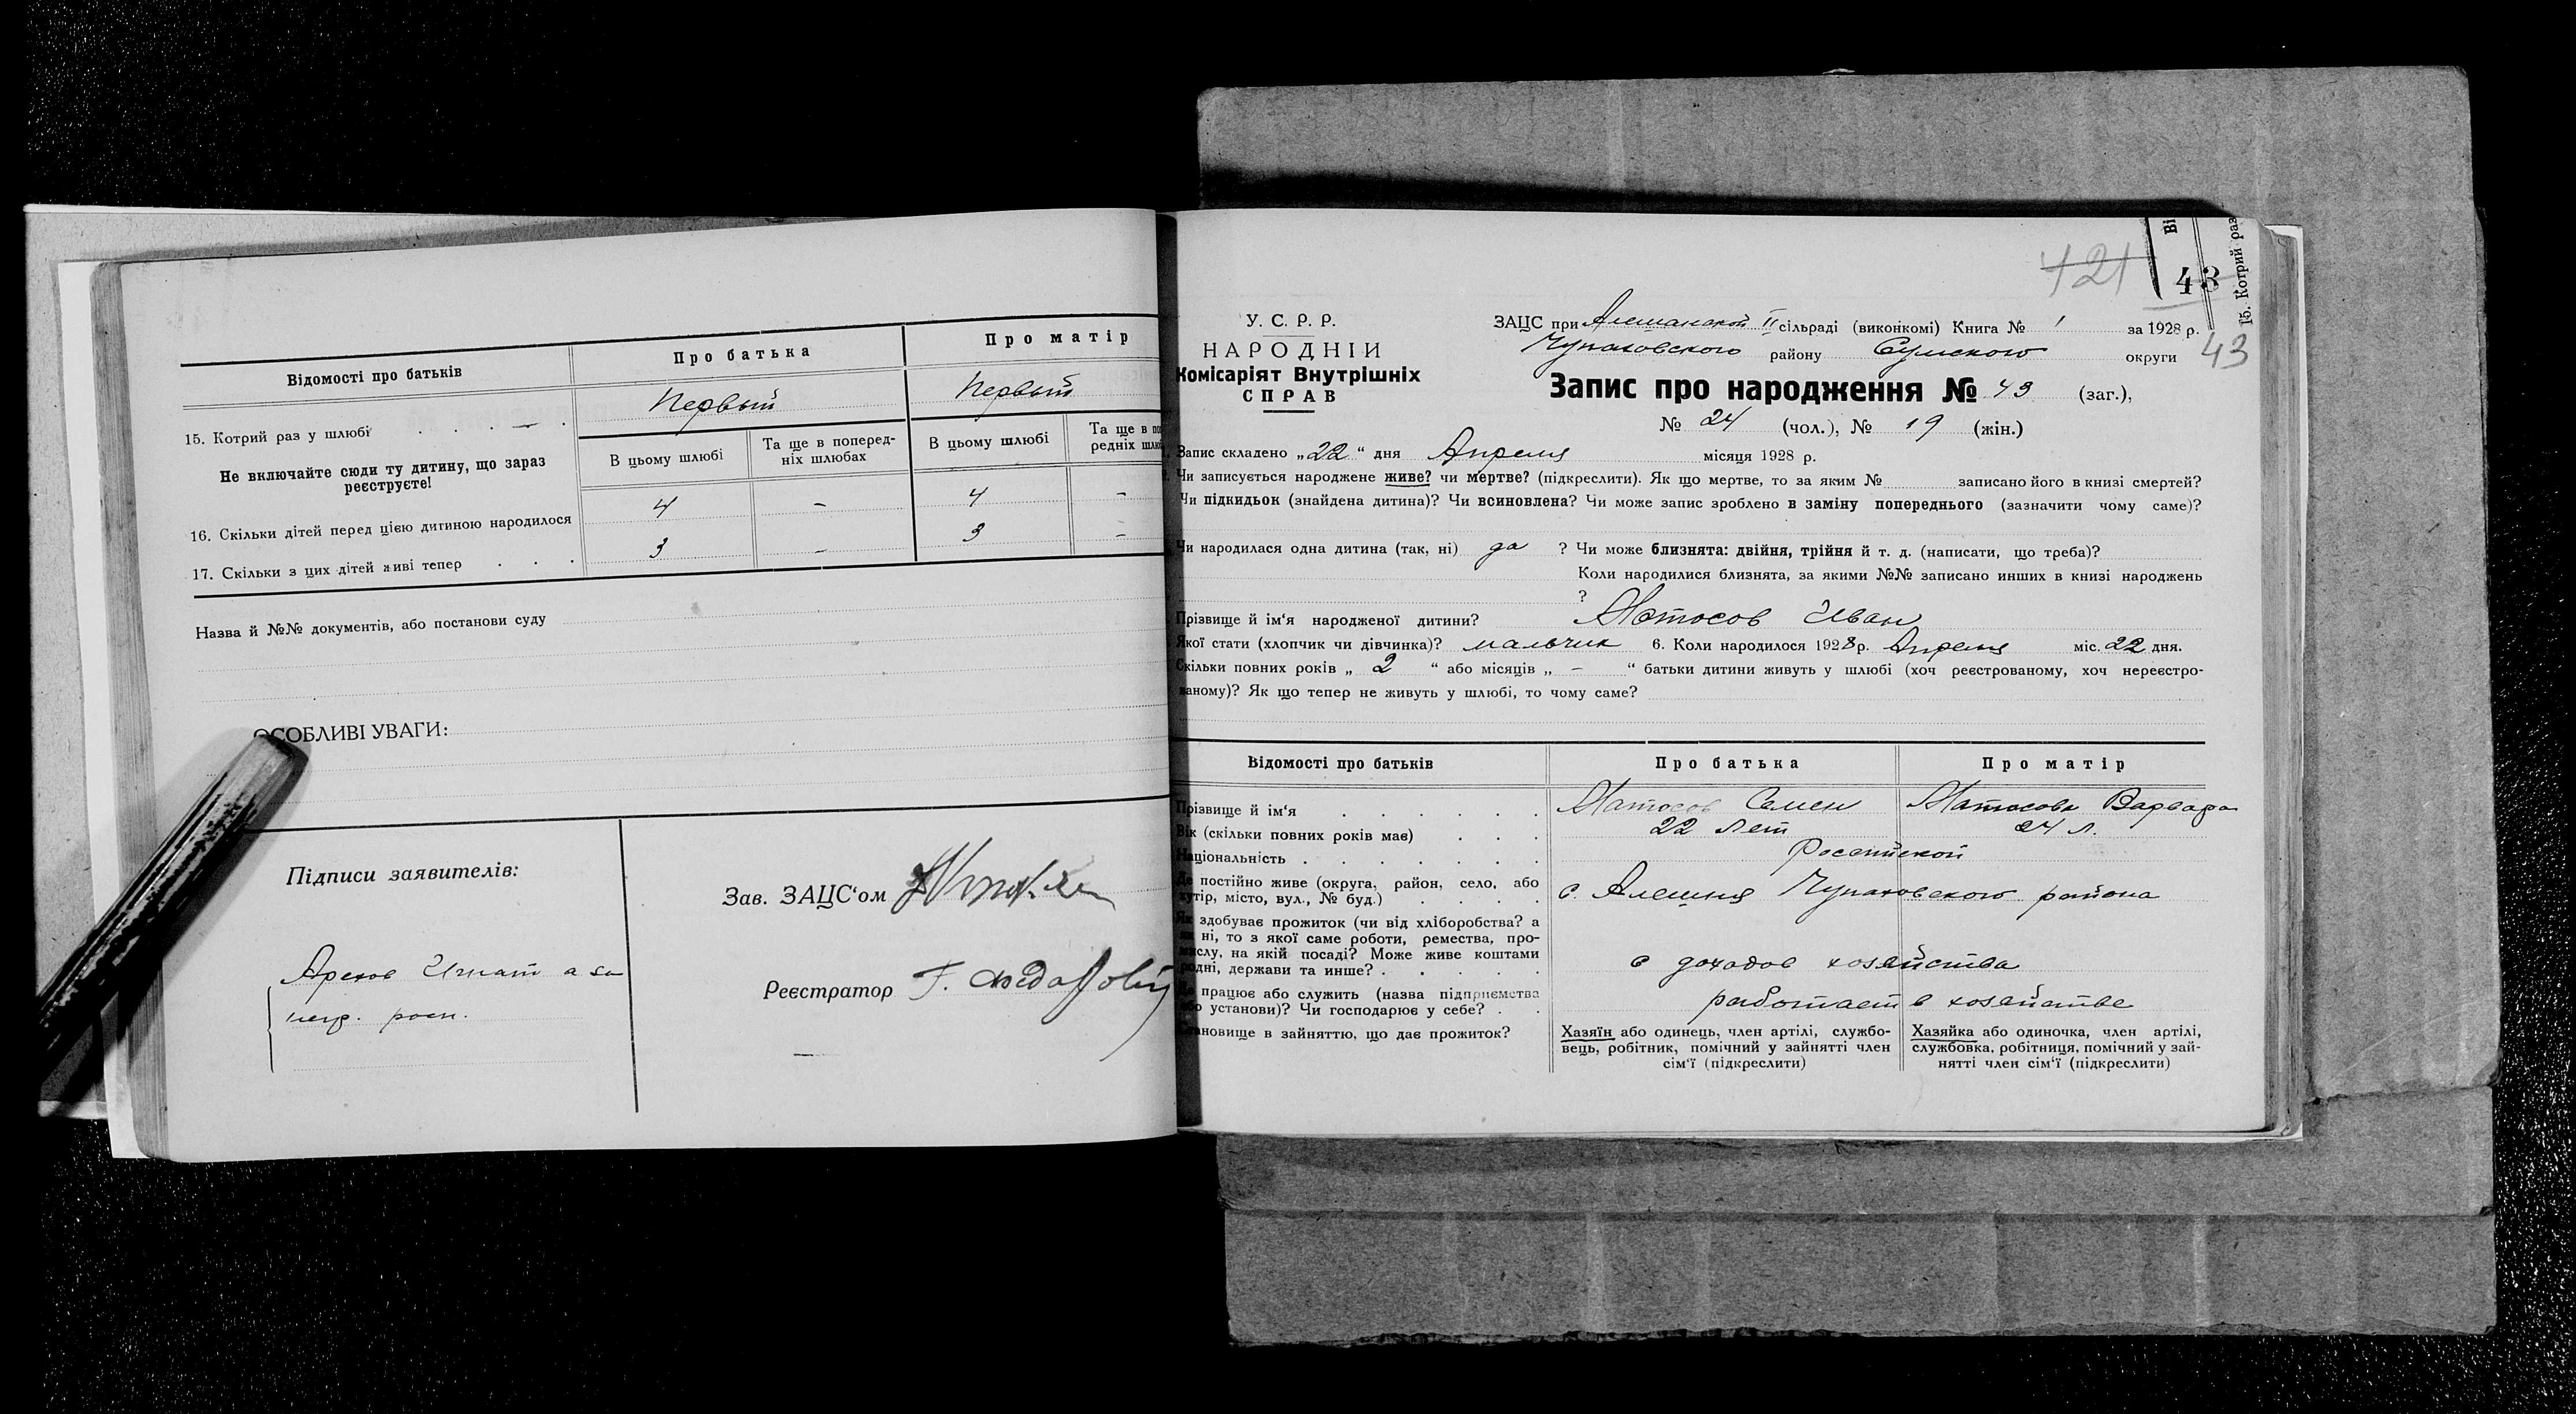 Відомості про батьків
Про батька
Про матір
15. Котрий раз у шлюбі
Первый
Первый
Не включайте сюди ту дитину, що зараз
реєструєте!
В цьому шлюбі
Та ще в поперед-
ніх шлюбах
В цьому шлюбі
Та ще в по
редніх шлю
16. Скільки дітей перед цією дитиною народилося
4 - 4 -
17. Скільки з цих дітей живі тепер
3 - 3 -
Назва й №№ документів, або постанови суду
ОСОБЛИВІ УВАГИ:
Підписи заявителів:
Игнат а за
негр.
Зав. ЗАЦС'ом
Реєстратор Г.
421
Ві
43
15. Котрий раз
43
У. С. Р. Р.
НАРОДНІЙ
Комісаріят Внутрішніх
СПРАВ
ЗАЦС при Алешанской II сільраді (виконкомі) Книга № 1 за 1928 р.
Чупаховского району Сумского округи
Запис про народження № 43 (заг.),
№ 24 (чол.), № 19 (жін.)
Запис складено „22“ дня Апреля місяця 1928 р.
Чи записується народжене живе? чи мертве? (підкреслити). Як що мертве, то за яким № записано його в книзі смертей?
Чи підкидьок (знайдена дитина)? Чи всиновлена? Чи може запис зроблено в заміну попереднього (зазначити чому саме)?
Чи народилася одна дитина (так, ні) да ? Чи може близнята: двійня, трійня й т. д. (написати, що треба)?
Коли народилися близнята, за якими №№ записано инших в книзі народжень
?
Прізвище й ім'я народженої дитини? Матосов Иван
Якої стати (хлопчик чи дівчинка)? мальчик 6. Коли народилося 1928 р. Апреля міс. 22 дня.
Скільки повних років „ 2 “ або місяців „ - “ батьки дитини живуть у шлюбі (хоч реєстрованому, хоч нереєстро-
ваному)? Як що тепер не живуть у шлюбі, то чому саме?
Відомості про батьків
Про батька
Про матір
Прізвище й ім'я
Матосов Семен
Матосова Варвара
Вік (скільки повних років має)
22 лет
24 л.
Національність
Российской
Де постійно живе (округа, район, село, або
хутір, місто, вул., № буд.)
с. Алешня Чупаховского района
Як здобуває прожиток (чи від хліборобства? а
як ні, то з якої саме роботи, ремества, про-
мислу, на якій посаді? Може живе коштами
родні, держави та инше?
с доходов хозяйства
Де працює або служить (назва підприємства
або установи)? Чи господарює у себе?
работает в хозяйстве
Становище в зайняттю, що дає прожиток?
Хазяїн або одинець, член артілі, службо-
вець, робітник, помічний у занятті член
сім'ї (підкреслити)
Хазяйка або одиночка, член артілі,
службовка, робітниця, помічний у зай-
нятті член сім'ї (підкреслити)